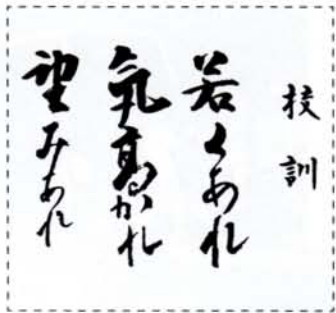 校訓
若くあれ
氣高かれ
望みあれ